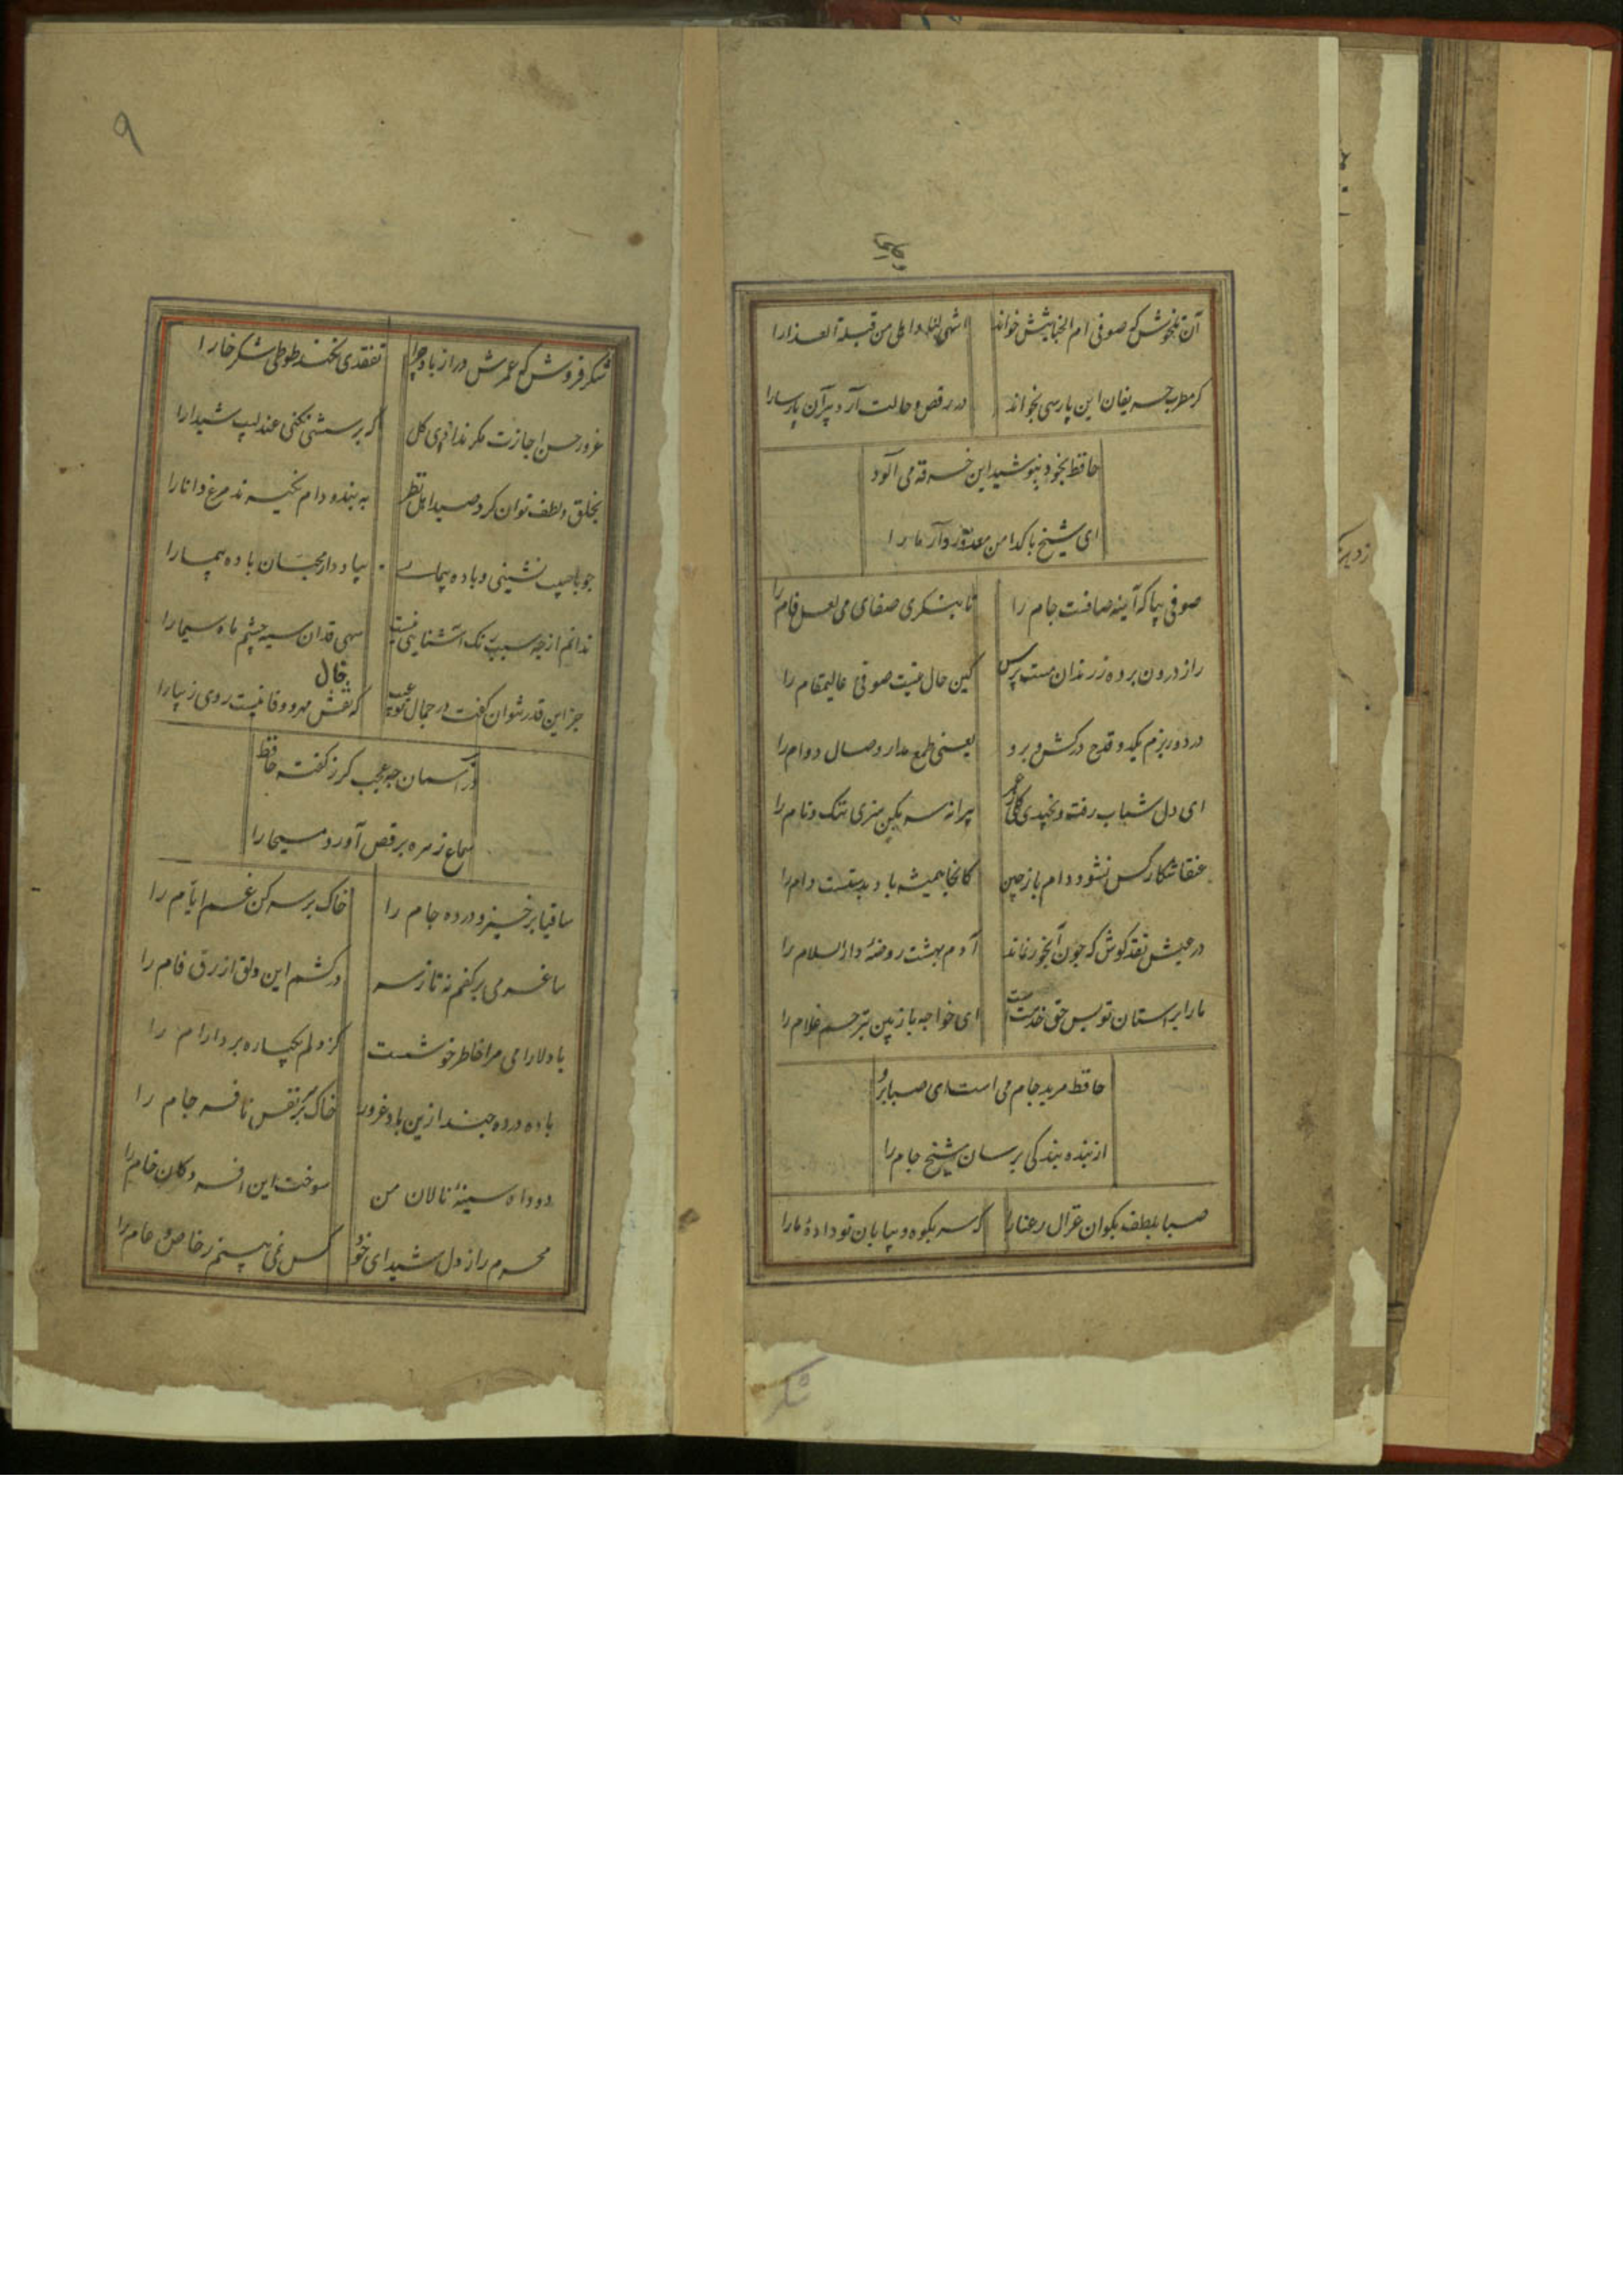 آن تلخوش که صوفی ام الخبایثش خواند اشهی لنا و احلی من قبلة العذارا
کر مطرب حریفان این پارسی بخواند در رقص و حالت آرد پیران پارسا را
حافظ بخود نپوشید این خرقه می آلود
ای شیخ پاکدامن معذور دار ما را
صوفی بیا که آینه صافست جام را تا بنکری صفای می لعل فام را
راز درون پرده ز رندان مست پرس کین حال نیست صوفی عالیمقام را
در دور بزم یکدو قدح درکش و برو یعنی طمع مدار وصال دوام را
ای دل شباب رفت و نچیدی کلی ز عمر پیرانه سر بکن هنری ننک و نام را
عنقا شکار کس نشود دام باز چین کانجا همیشه باد بدستست دام را
در عیش نقد کوش که چون آبخور نماند آدم بهشت روضهٔ دار السلام را
ما را بر استان تو بس حق خدمتست ای خواجه باز بین بترحم غلام را
حافظ مرید جام می است ای صبا برو
از بنده بندکی برسان شیخ جام را
صبا بلطف بکو ان غزال رعنا را که سر بکوه و بیابان تو دادهٔ ما را
شکر
۹
شکر فروش که عمرش دراز باد چرا تفقدی نکند طوطی شکر خا را
غرور حسن اجازت مکر نداد ای کل که پرسشی نکنی عندلیب شیدا را
بخلق و لطف توان کرد صید اهل نظر به بند و دام نکیرند مرغ دانا را
چو با حبیب نشینی و باده پیمای بیاد دار محبان باده پیما را
ندانم از چه سبب رنک اشنایی نیست سهی قدان سیه چشم ماه سیما را
جز این قدر نتوان کفت در جمال تو عیب که نقش مهر و وفا نیست روی زیبا را
خال
در آسمان چه عجب کر ز کفته حافظ
سماع زهره برقص آورد مسیحا را
ساقیا برخیز و درده جام را خاک بر سر کن غم ایام را
ساغر می بر کفم نه تا ز سر درکشم این دلق ازرق فام را
با دلارامی مرا خاطر خوشست کز دلم یکباره برد ارام را
باده درده چند ازین باد غرور خاک بر نفس نافرجام را
دود اه سینهٔ نالان من سوخت این افسردکان خام را
محرم راز دل شیدای خود کس نمی بینم ز خاص و عام را